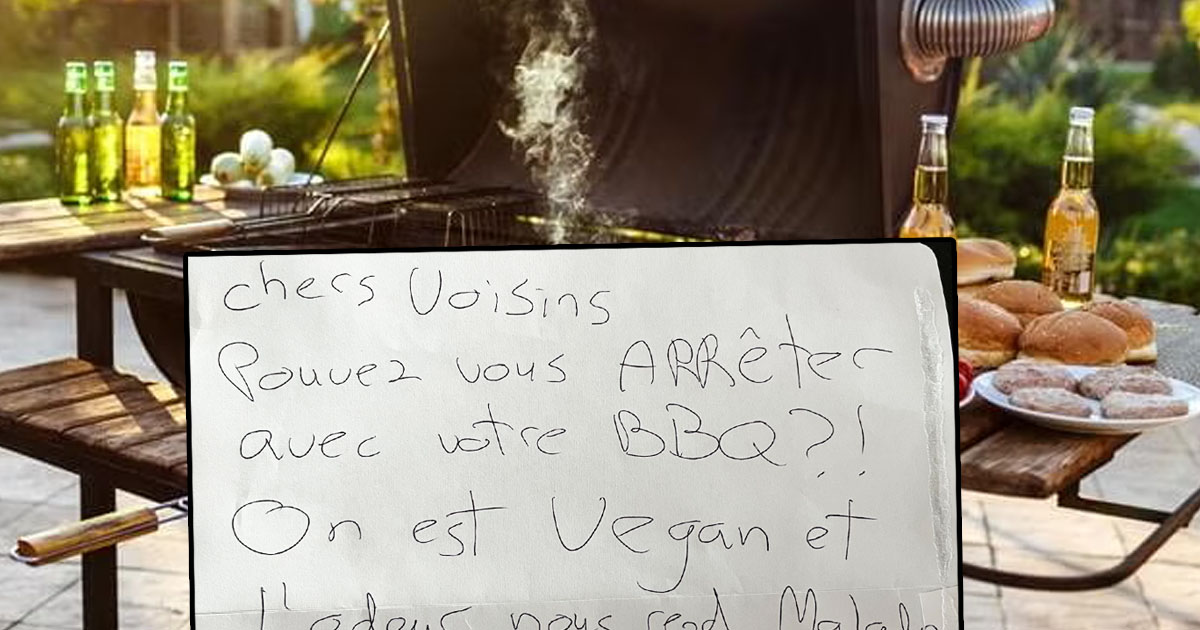 chers Voisins
Pouvez vous ARRêter
avec votre BBQ?!
On est Vegan et
l'odeur nous rend Malade